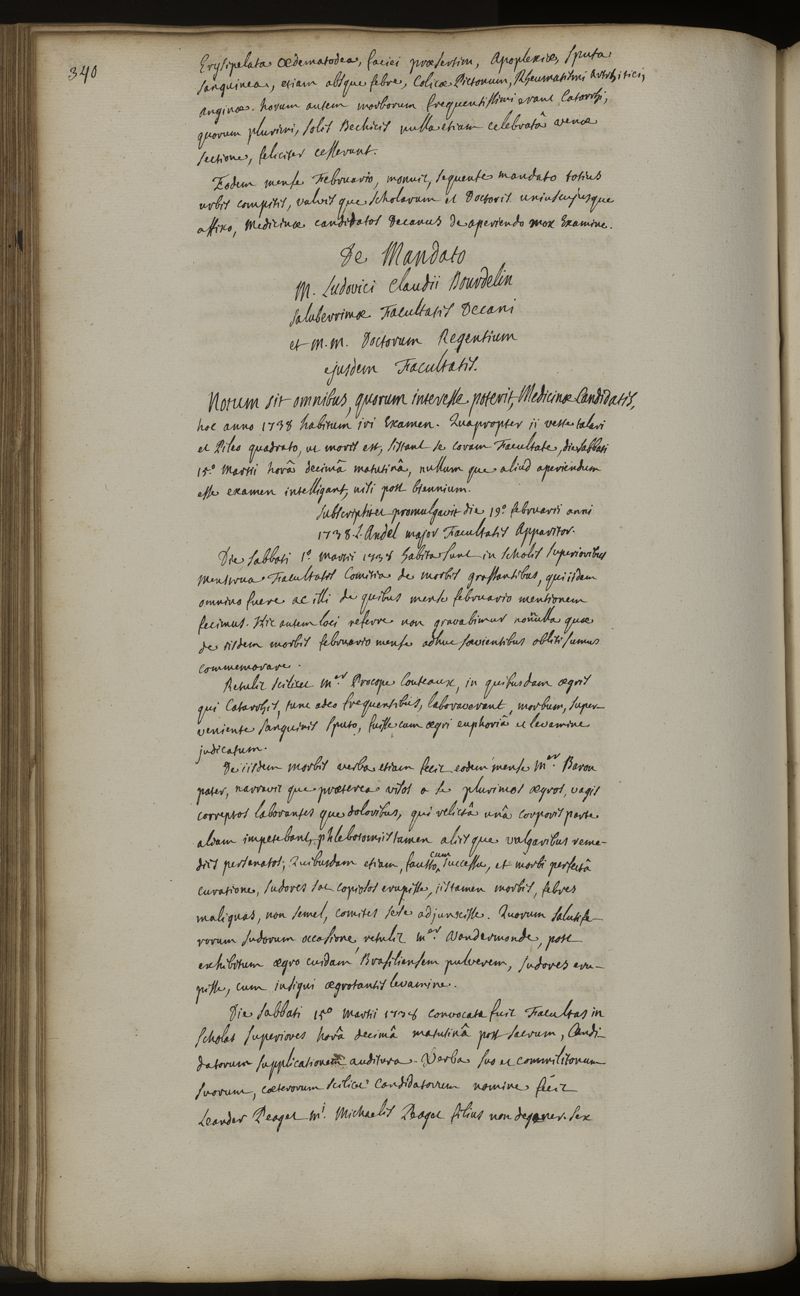 340
Erysipelata œdematodea, faciei præsertim, Apoplexiæ, Sputa
sanguinea, etiam absque febre, Colicæ Pictonum, Rheumatismi Arthritici,
anginæ. horum autem morborum frequentissimi erant Catarrhi,
quorum plurimi, solis Bechicis nulla etiam celebratâ venæ
sectione, feliciter cesserunt.
Eodem mense Februario, monuit, sequente mandato totius
urbis compitis, valvis que scholarum et Doctoris uniuscujusque
affixo, Medicinæ candidatos Decanus de aperiendo mox Examine.
De Mandato
M. Ludovici Claudii Bourdelin
Saluberrimæ Facultatis Decani
et M.M. Doctorum Regentium
ejusdem Facultatis.
Notum sit omnibus, quorum interesse poterit, Medicinæ Candidatis,
hoc anno 1738 habitum iri Examen. Quapropter ii veste talari
et Pileo quadrato, ut moris est, sistant se coram Facultate, die Sabbati
15.º Martii horâ decimâ matutinâ, nullum que aliud aperiendum
esse examen intelligant, nisi post biennium.
Subscripsit et promulgavit die 19º februarii anni
1738. L. Andel major Facultatis Apparitor.
Die Sabbati 1º Martii 1738 habita sunt in Scholis superioribus
menstrua Facultatis Comitia de morbis grassantibus, qui iidem
omnino fuere ac illi de quibus mense februario mentionem
fecimus. Hic autem loci referre non gravabimur nonnulla quæ
de iisdem morbis februario mense adhuc sævientibus obliti sumus
commemorare.
Retulit scilicet M.er Procope Couteaux, in quibusdam ægris
qui Catarrhis, tunc adeo frequentibus, laboraverant, morbum, super-
veniente sanguinis sputo, fuisse cum ægri euphoriâ et levamine
judicatum.
De iisdem morbis verba etiam fecit eodem mense M.er Baron
pater, narravit que præterea visos a se plurimos ægros, vagis
correptos laborantes que doloribus, qui relictâ unâ corporis parte
aliam impetebant, phlebotomiis tamen aliis que vulgaribus reme-
diis persanatos; Quibusdam etiam, fausto cum successu, et morbi perfectâ
curatione, sudores sat copiosos erupisse, iis tamen morbis, febres
malignas, non semel, comites sese adjunxisse. Quorum salutife-
rorum sudorum occasione, retulit M.er Vandermonde, post
exhibitum ægro cuidam Brasiliensem pulverem, sudores eru-
pisse, cum insigni ægrotantis levamine.
Die Sabbati 15º Martii 1738 convocata fuit Facultas in
Scholas superiores horâ decimâ matutinâ post sacrum, Candi-
datorum supplicationem auditura. Verba suo et commilitonum
suorum, cæterorum scilicet candidatorum nomine fecit
Leander Peaget M.i Michaelis Peaget filius non degener. Sex